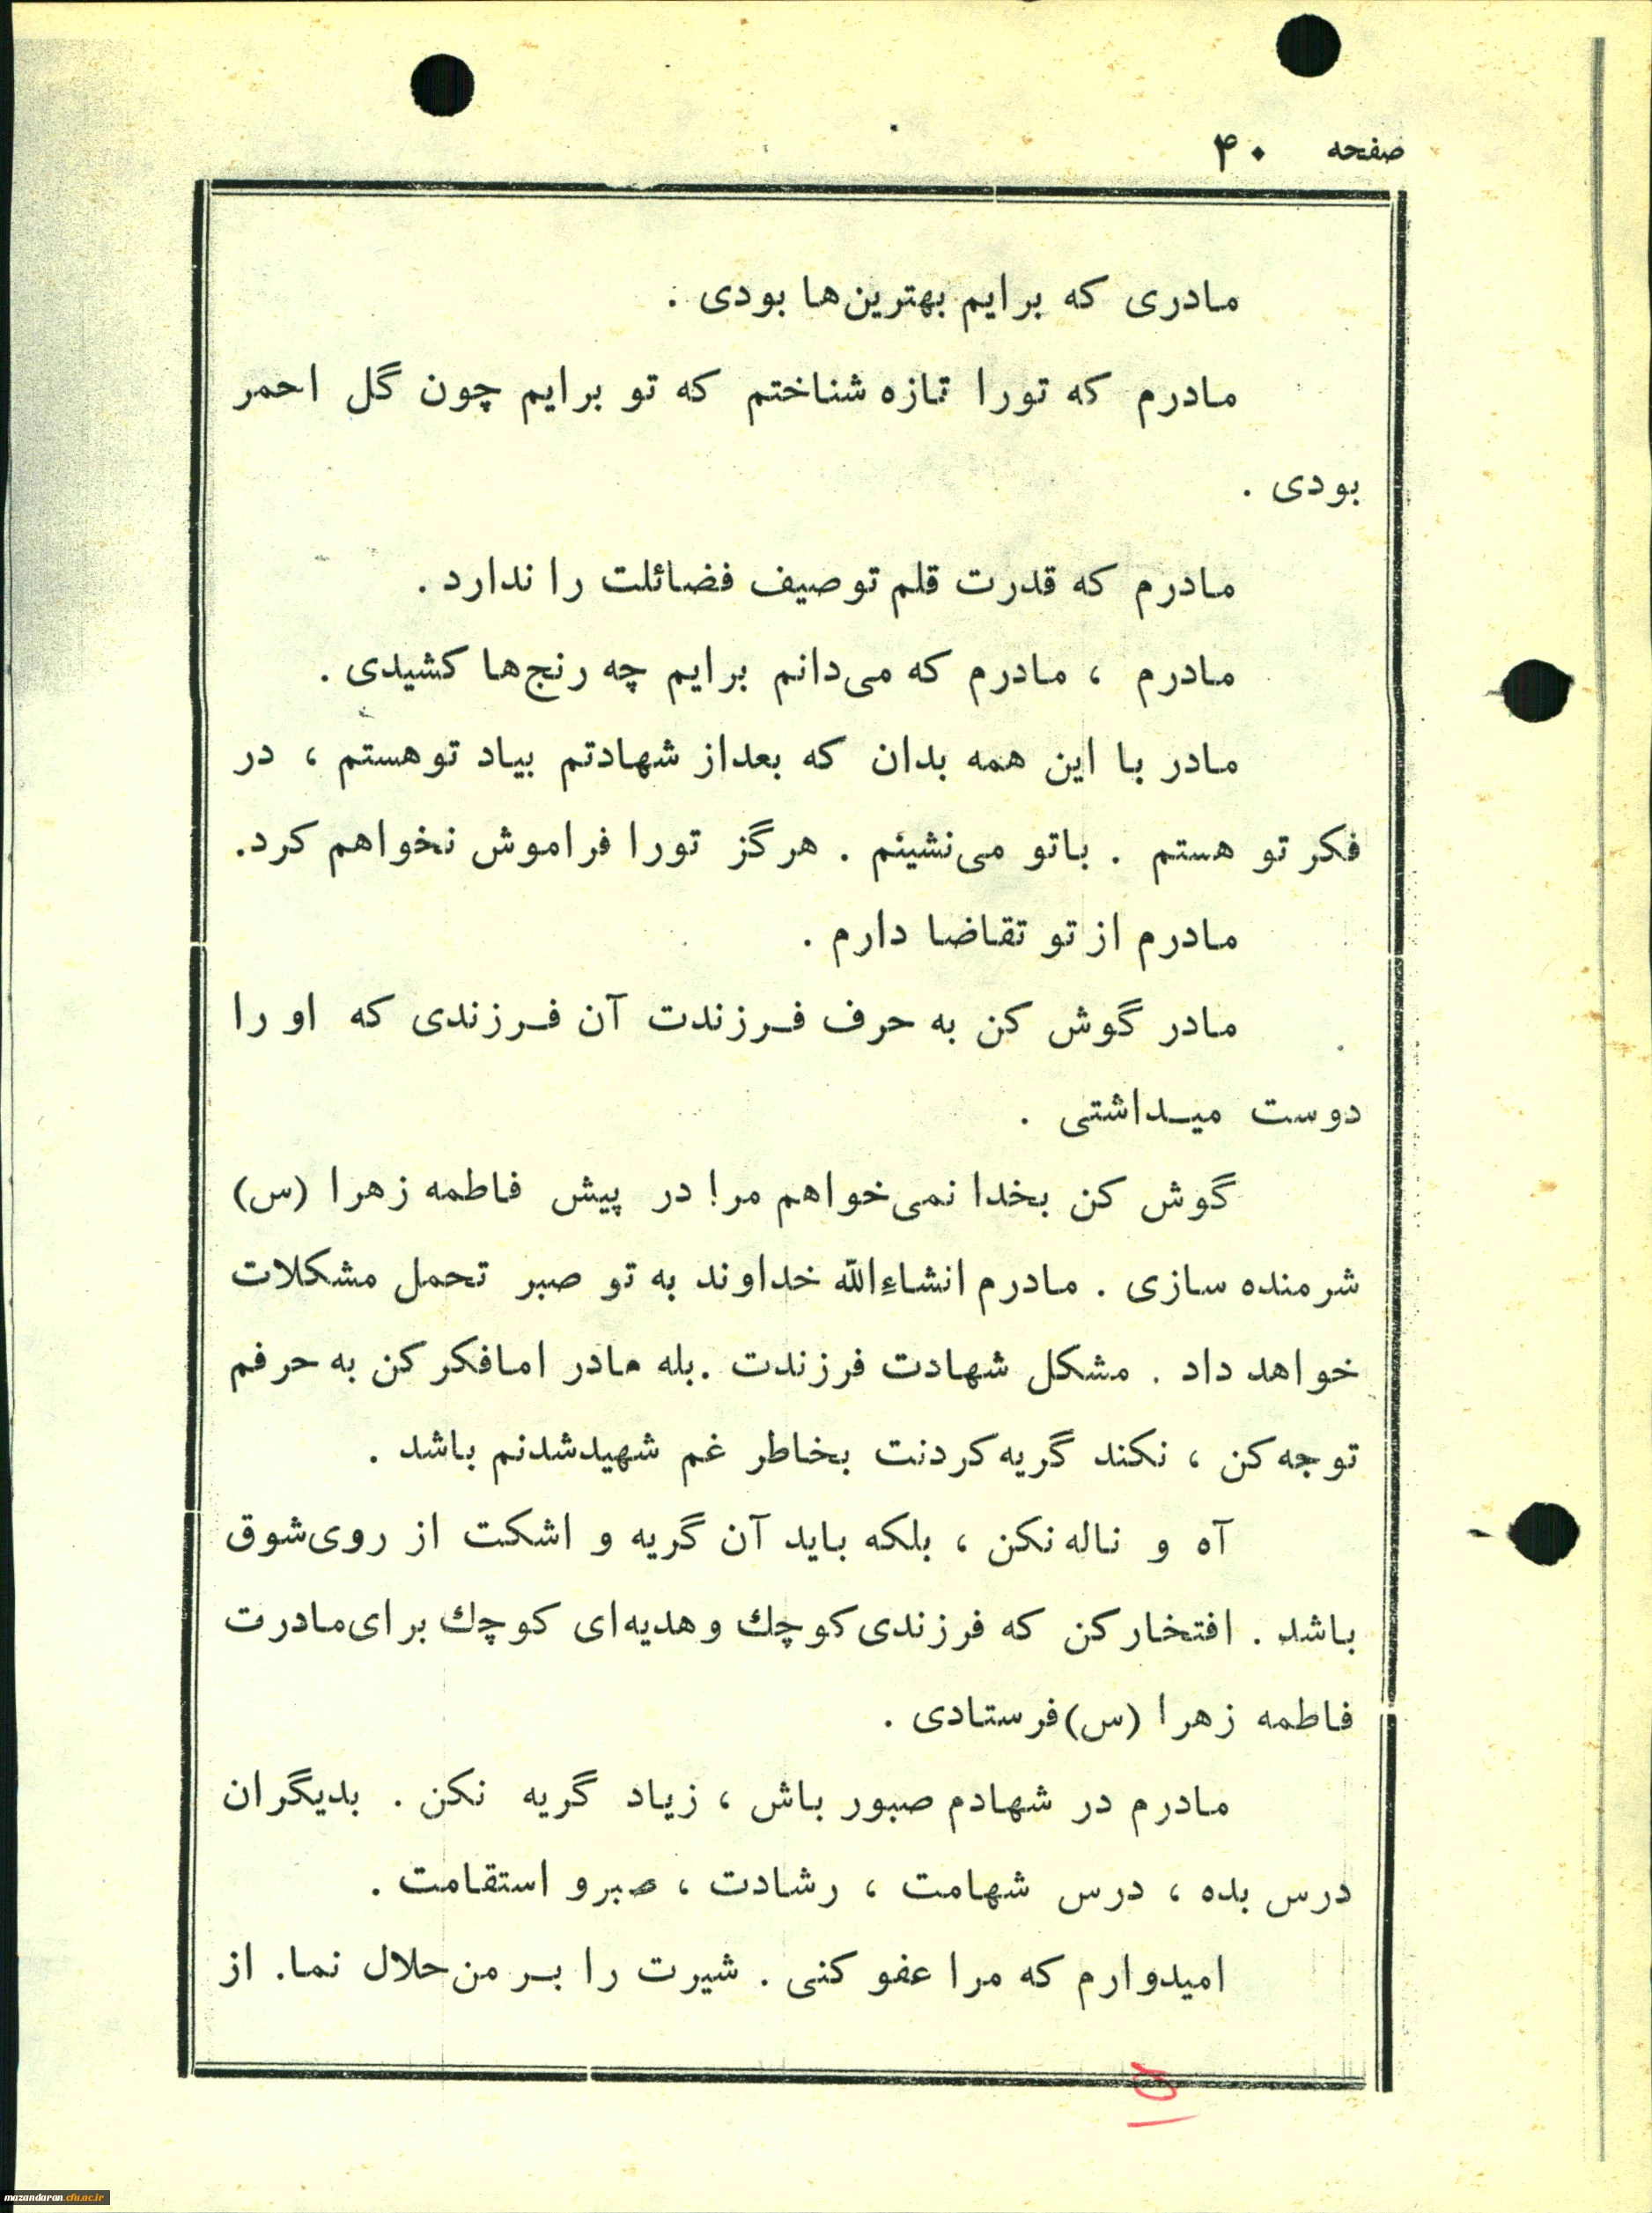 صفحه ۴۰
مادری که برایم بهترین‌ها بودی .
مادرم که تورا تازه شناختم که تو برایم چون گل احمر
بودی .
مادرم که قدرت قلم توصیف فضائلت را ندارد .
مادرم ، مادرم که می‌دانم برایم چه رنج‌ها کشیدی .
مادر با این همه بدان که بعداز شهادتم بیاد توهستم ، در
فکر تو هستم . باتو می‌نشینم . هرگز تورا فراموش نخواهم کرد.
مادرم از تو تقاضا دارم .
مادر گوش کن به حرف فـرزندت آن فـرزندی که او را
دوست میـداشتی .
گوش کن بخدا نمی‌خواهم مرا در پیش فاطمه زهرا (س)
شرمنده سازی . مادرم انشاءالله خداوند به تو صبر تحمل مشکلات
خواهد داد . مشکل شهادت فرزندت .بله مادر امافکر کن به حرفم
توجه‌کن ، نکند گریه‌کردنت بخاطر غم شهیدشدنم باشد .
آه و ناله‌نکن ، بلکه باید آن گریه و اشکت از روی‌شوق
باشد . افتخارکن که فرزندی‌کوچك وهدیه‌ای کوچك برای‌مادرت
فاطمه زهرا (س)فرستادی .
مادرم در شهادم صبور باش ، زیاد گریه نکن . بدیگران
درس بده ، درس شهامت ، رشادت ، صبرو استقامت .
امیدوارم که مرا عفو کنی . شیرت را بـر من‌حلال نما. از
mazandaran.cfu.ac.ir